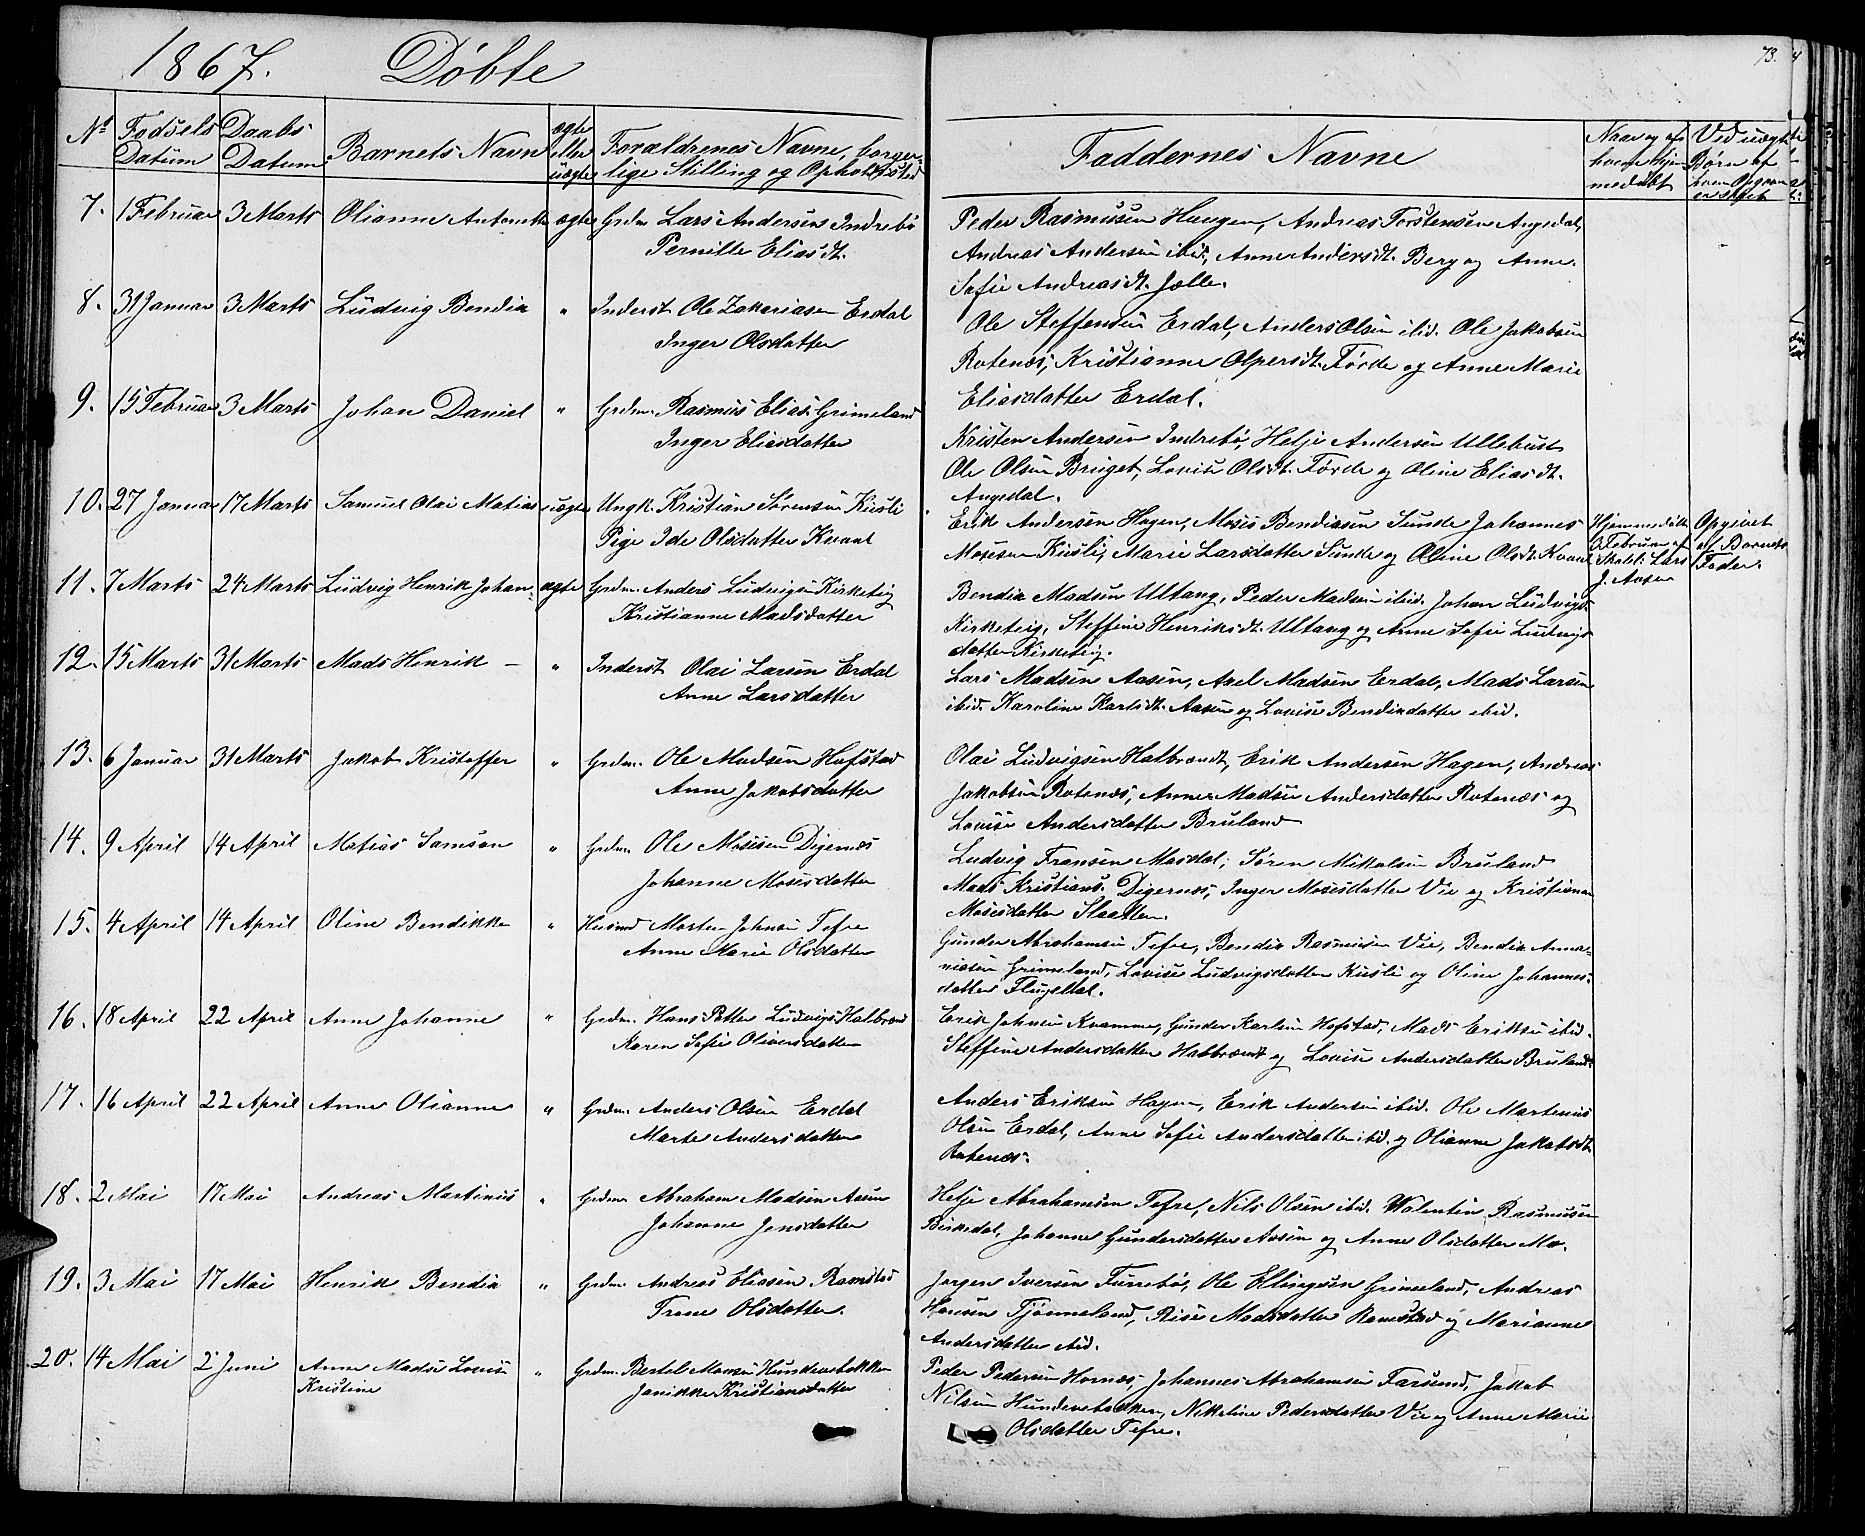 1867. Døbte
73.
No Fødsels Datum Daabs Datum Barnets Navn ægte eller uægte Forældrenes Navne, borgerlige Stilling og Opholdssted
Faddernes Navne
Naar og af hvem hjemmedøbt
Ved uægte Børn af hvem Opgaven er skeet
7. 1 Februar 3 Marts Olianne Antonette ægte Grdm. Lars Andersen Indrebø
Pernille Eliasdt.
Peder Rasmusen Haugen, Andreas Torstensen Angedal,
Andreas Andersen ibid, Anne Andersdt. Berg og Anne
Sofie Andreasdt. Jølle.
8. 31 Januar 3 Marts Ludvig Bendix " Inderst Ole Zakariasen Erdal
Inger Olsdatter
Ole Steffensen Erdal, Anders Olsen ibid. Ole Jakobsen
Rotenæs, Kristianne Olpersdt. Førde og Anne Marie
Eliasdatter Erdal.
9. 15 Februar 3 Marts Johan Daniel " Grdm. Rasmus Elias. Grimeland
Inger Eliasdatter
Kristen Andersen Indrebø, Helje Andersen Ullebust
Ole Olsen Bruget, Lovise Olsdt. Førde og Oline Eliasdt.
Angedal.
10. 27 Januar 17 Marts Samuel Olai Matias uægte Ungk. Kristian Sørensen Kusli
Pige Ide Olsdatter Kvaal
Erik Andersen Hagen, Moses Bendixsen Sunde Johannes
Mosesen Kusli, Marie Larsdatter Sunde og Oline Olsdt. Kvaal
Hjemmedøbt
3 Februar af
Skolel. Lars
J. Aasen
Opgivet
af Barnets
Fader.
11. 7 Marts 24 Marts Ludvig Henrik Johan. ægte Grdm. Anders Ludvigsen Kirketeig
Kristianne Madsdatter
Bendix Madsen Ultang, Peder Madsen ibid. Johan Ludvigs.
Kirketeig, Steffine Henriksdt. Ultang og Anne Sofie Ludvigs
datter Kirketeig.
12. 15 Marts 31 Marts Mads Henrik - " Inderst Olai Larsen Erdal
Anne Larsdatter
Lars Madsen Aasen, Axel Madsen Erdal, Mads Larsen
ibid. Karoline Karlsdt. Aasen og Lovise Bendixdatter ibid.
13. 6 Januar 31 Marts Jakob Kristoffer " Grdm. Ole Madsen Hofstad
Anne Jakobsdatter
Olai Ludvigsen Halbrændt, Erik Andersen Hagen, Andreas
Jakobsen Rotenæs, Anne Madsie Andersdatter Rotenæs og
Lovise Andersdatter Bruland
14. 9 April 14 April Matias Samson " Grdm. Ole Mosesen Digernæs
Johanne Mosesdatter
Ludvig Fransen Masdal, Søren Mikalsen Bruland
Mads Kristians. Digernæs, Inger Mosesdatter Vie og Kristianne
Mosesdatter Slaatten.
15. 4 April 14 April Oline Bendikke " Husmd Morten Johnsen Tefre
Anne Marie Olsdatter
Gunder Abrahamsen Tefre, Bendix Rasmusen Vie, Bendix Anna-
niasen Grimeland, Lovise Ludvigsdatter Kusli og Oline Johannes-
datter Flugedal.
16. 18 April 22 April Anne Johanne " Grdm. Hans Petter Ludvigs. Halbrænd
Karen Sofie Oliversdatter
Erik Johnsen Kvamme, Gunder Karlsen Hofstad, Mads Eriksen ibid.
Steffine Andersdatter Halbrændt og Lovise Andersdatter Bruland.
17. 16 April 22 April Anne Olianne " Grdm. Anders Olsen Erdal
Marte Andersdatter
Anders Eriksen Hagen, Erik Andersen ibid. Ole Martenius
Olsen Erdal, Anne Sofie Andersdatter ibid. og Olianne Jakobsdt.
Rotenæs.
18. 2 Mai 17 Mai Andreas Martinus " Grdm. Abraham Madsen Aasen
Johanne Jensdatter
Helje Abrahamsen Tefre, Nils Olsen ibid. Valentin Rasmusen
Birkedal, Johanne Gundersdatter Aasen og Anne Olsdatter Mo.
19. 3 Mai 17 Mai Henrik Bendix " Grdm. Andreas Eliasen Ramstad
Trine Olsdatter.
Jørgen Iversen Furrebø, Ole Ellingsen Grimeland, Andreas
Hansen Tjønneland, Rise Madsdatter Ramstad og Marianne
Andersdatter ibid.
20. 14 Mai 2 Juni Anne Madsie Lovise
Kristine " Grdm. Bertel Monsen Hundvebakke
Janikke Kristiansdatter
Peder Pedersen Hornæs, Johannes Abrahamsen Farsund, Jakob
Nilsen Hundvebakken, Nikoline Pedersdatter Vie og Anne Marie
Olsdatter Tefre.